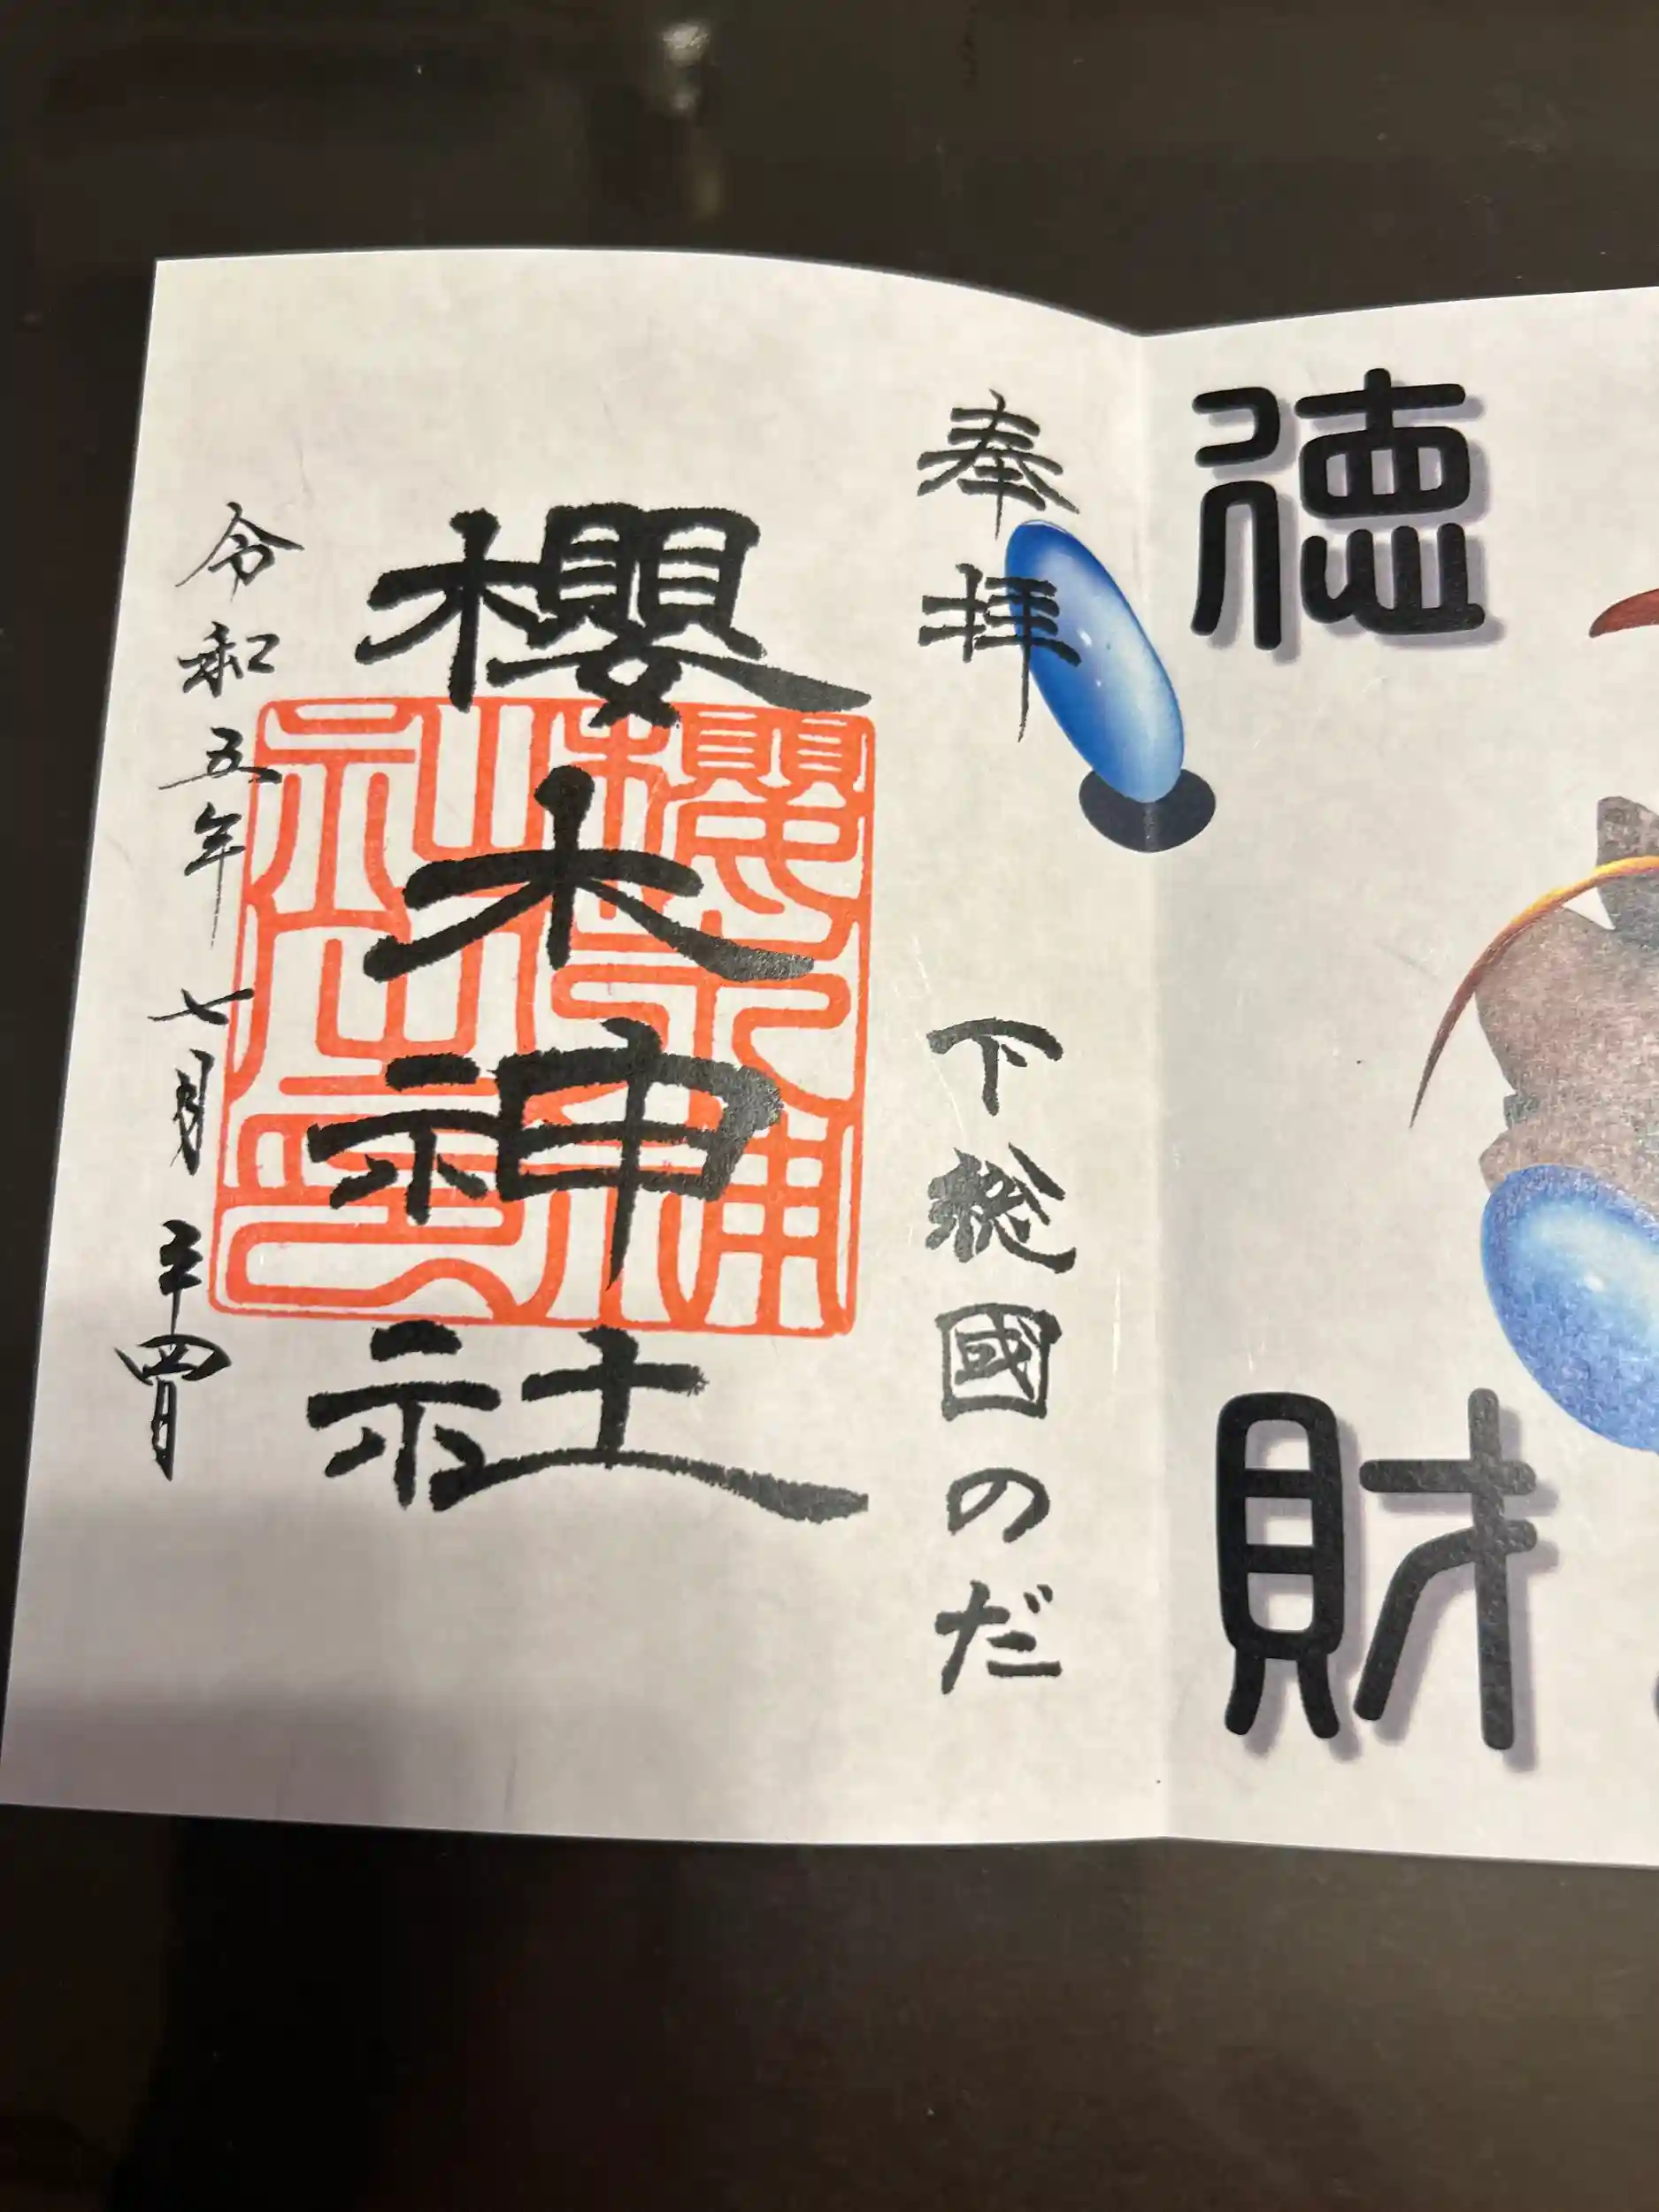 徳財
奉拝 下総國のだ
櫻木神社
令和五年七月二十四日